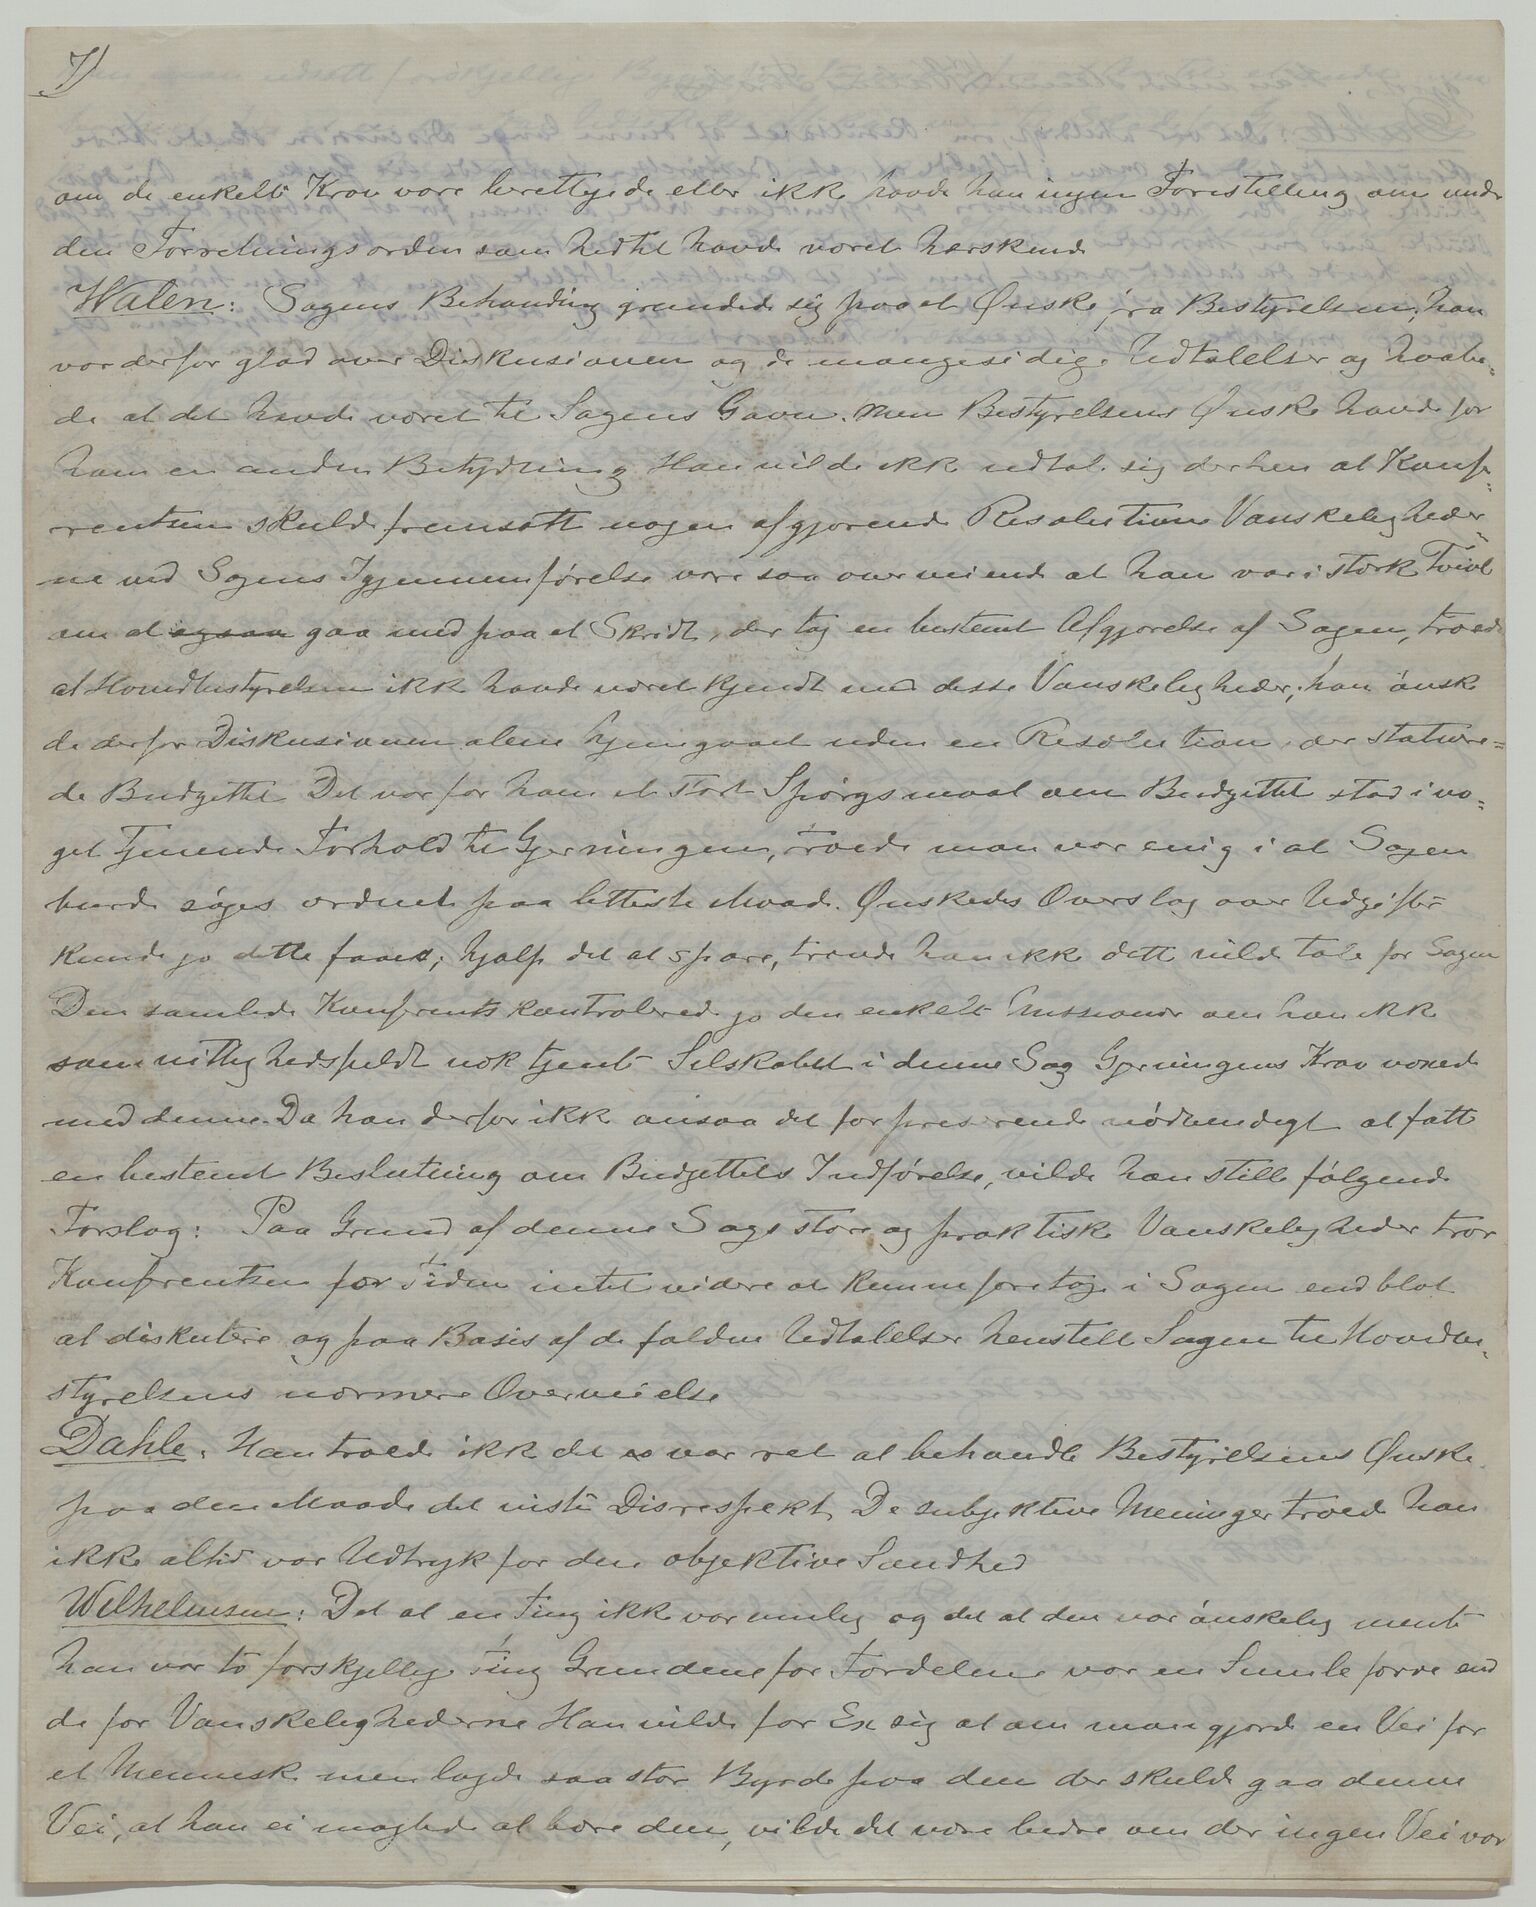 7)
om de enkelte Krav vare berettigede eller ikke havde han ingen Forestilling om under
den Forretningsorden som hidtil havde været herskende
Walen: Sagens Behandling grundede sig paa et Ønske fra Bestyrelsen, han
var derfor glad over Diskusionen og de mangesidige Udtalelser og haabe=
de at det havde været til Sagens Gavn. Men Bestyrelsens Ønske havde for
ham en anden Betydning. Han vilde ikke udtale sig derhen at Konfe=
rentsen skulde fremsætte nogen afgjørende Resolution Vanskeligheder=
ne ved Sagens Igjennemførelse vare saa overveiende at han var i stærk Tvivl
om at ogsaa gaa med paa et Skridt, der tog en bestemt Afgjørelse af Sagen, troede
at Hovedbestyrelsen ikke havde været kjendt med disse Vanskeligheder, han ønske
de derfor Diskusionen alene hjemgaaet uden en Resolution, der statuere=
de Budgettet Det var for ham et stort Spørgsmaal om Budgettet stod i no=
get tjenende Forhold til Gjerningen, troede man var enig i at Sagen
burde søges ordnet paa letteste Maade. Ønskedes Overslag over Udgifter
kunde jo dette faaes; hjalp det at spare, troede han ikke dette vilde tale for Sagen
Den samlede Konferents kontrolerede jo den enkelte Missionær om han ikke
samvittighedsfuldt nok tjente Selskabet i denne Sag Gjerningens Krav voxede
med denne. Da han derfor ikke ansaa det for presserende nødvendigt at fatte
en bestemt Beslutning om Budgettets Indførelse, vilde han stille følgende
Forslag: Paa Grund af denne Sags store og praktiske Vanskeligheder tror
Konferentsen for Tiden intet videre at kunne foretage i Sagen end blot
at diskutere og paa Basis af de faldne Udtalelser henstille Sagen til Hovedbe=
styrelsens nærmere Overveielse
Dahle. Han troede ikke det var ret at behandle Bestyrelsens Ønske
paa den Maade det viste Disrespekt. De subjektive Meninger troede han
ikke altid var Udtryk for den objektive Sandhed
Wilhelmsen: Det at en Ting ikke var mulig og det at den var ønskelig mente
han var to forskjellige Ting Grundene for Fordelene var en Smule færre end
de for Vanskelighederne Han vilde for Ex sige at om man gjorde en Vei for
et Menneske men lagde saa stor Byrde paa den der skulde gaa denne
Vei, at han ei magtede at bære den, vilde det være bedre om der ingen Vei var